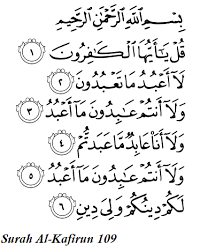 بِسْمِ اللَّهِ الرَّحْمَٰنِ الرَّحِيمِ
قُلْ يَا أَيُّهَا الْكَافِرُونَ ١
لَا أَعْبُدُ مَا تَعْبُدُونَ ٢
وَلَا أَنتُمْ عَابِدُونَ مَا أَعْبُدُ ٣
وَلَا أَنَا عَابِدٌ مَّا عَبَدتُّمْ ٤
وَلَا أَنتُمْ عَابِدُونَ مَا أَعْبُدُ ٥
لَكُمْ دِينُكُمْ وَلِيَ دِينِ ٦
Surah Al-Kafirun 109